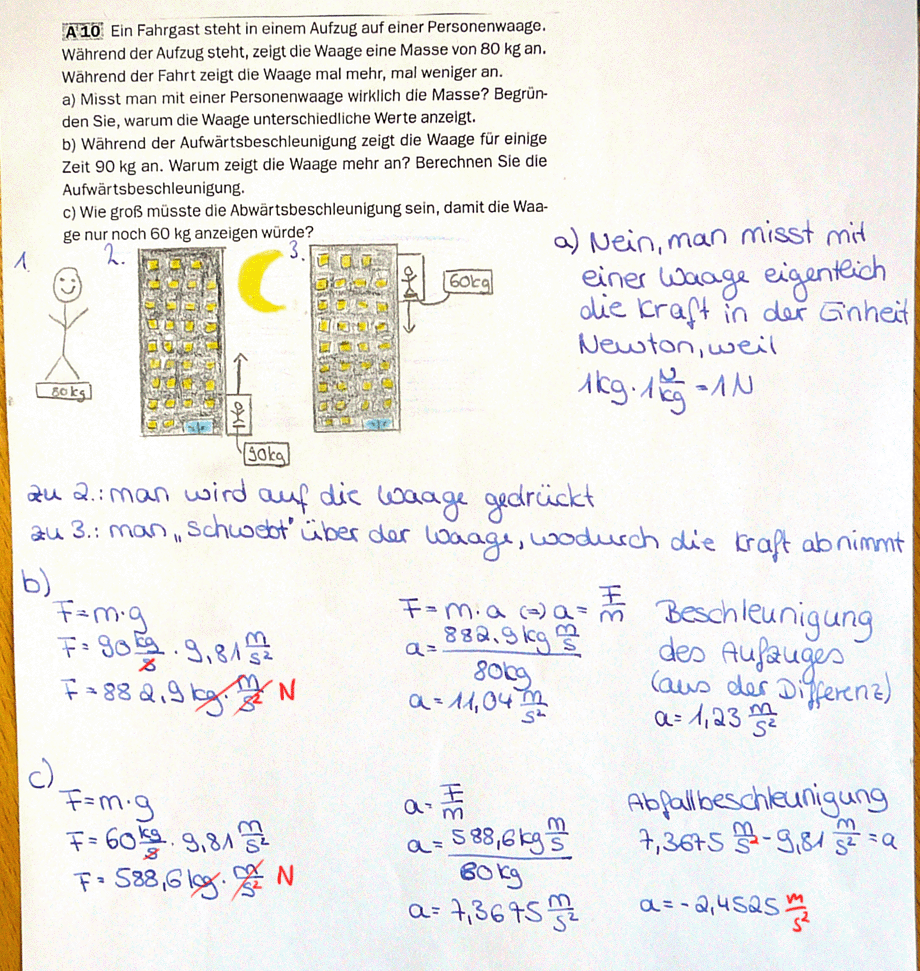 A 10 Ein Fahrgast steht in einem Aufzug auf einer Personenwaage.
Während der Aufzug steht, zeigt die Waage eine Masse von 80 kg an.
Während der Fahrt zeigt die Waage mal mehr, mal weniger an.
a) Misst man mit einer Personenwaage wirklich die Masse? Begrün-
den Sie, warum die Waage unterschiedliche Werte anzeigt.
b) Während der Aufwärtsbeschleunigung zeigt die Waage für einige
Zeit 90 kg an. Warum zeigt die Waage mehr an? Berechnen Sie die
Aufwärtsbeschleunigung.
c) Wie groß müsste die Abwärtsbeschleunigung sein, damit die Waa-
ge nur noch 60 kg anzeigen würde?
1.
80 kg
2.
90kg
3.
60kg
a) Nein, man misst mit
einer Waage eigentlich
die Kraft in der Einheit
Newton, weil
1kg · 1 N/kg = 1 N
zu 2.: man wird auf die Waage gedrückt
zu 3.: man „schwebt" über der Waage, wodurch die Kraft abnimmt
b)
F = m · g
F = 90 kg/s · 9,81 m/s²
F = 882,9 kg · m/s² N
F = m · a (=) a = F/m
a = 882,9 kg m/s / 80kg
a = 11,04 m/s²
Beschleunigung
des Aufzuges
(aus der Differenz)
a = 1,23 m/s²
c)
F = m · g
F = 60 kg/s · 9,81 m/s²
F = 588,6 kg · m/s² N
a = F/m
a = 588,6 kg m/s / 80 kg
a = 7,3675 m/s²
Abfallbeschleunigung
7,3675 m/s² - 9,81 m/s² = a
a = -2,4525 m/s²